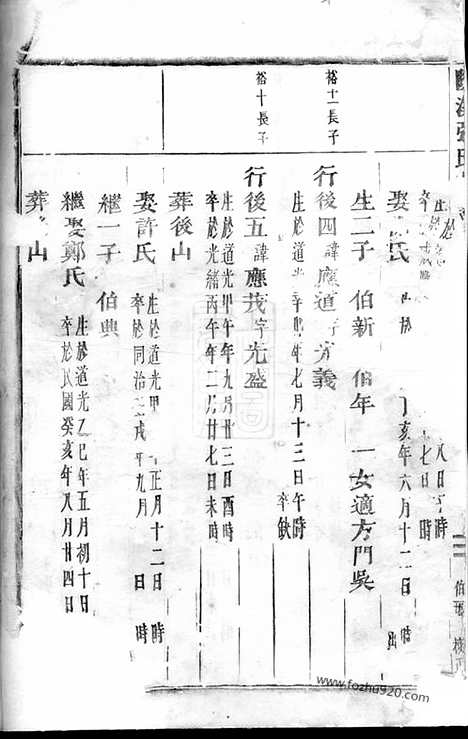 娶 氏
丁亥年六月十二日 時
生二子 伯新 伯年 一女適方門吳
裕十一長子
行後四諱應道字 義
生於道光 年七月十三日午時
卒缺
裕十長子
行後五諱應茂字光盛
生於道光甲午年九月廿三日酉時
卒於光緒丙午年二月廿七日未時
葬後山
娶許氏
生於道光甲 正月十二日 時
卒於同治 戌年九月 日 時
繼一子 伯興
繼娶鄭氏
生於道光乙巳年五月初十日
卒於民國癸亥年八月廿四日
葬 山
www.fozhu920.com